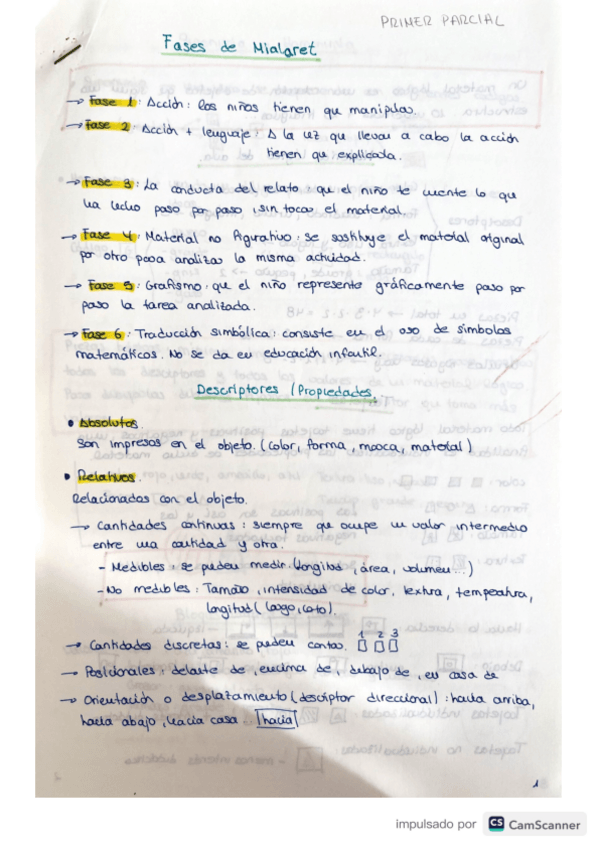 PRIMER PARCIAL
Fases de Mialaret
→ Fase 1: Acción: los niños tienen que manipular.
→ Fase 2: Acción + lenguaje: A la vez que llevan a cabo la acción
tienen que explicarla.
→ Fase 3: La conducta del relato: que el niño te cuente lo que
ha hecho paso por paso, sin tocar el material.
→ Fase 4: Material no figurativo: se sustituye el material original
por otro para analizar la misma actividad.
→ Fase 5: Grafismo: que el niño represente gráficamente paso por
paso la tarea analizada.
→ Fase 6: Traducción simbólica: consiste en el uso de símbolos
matemáticos. No se da en educación infantil.
Descriptores / Propiedades.
• Absolutos.
Son impresas en el objeto. (color, forma, masa, material)
• Relativos.
Relacionadas con el objeto.
→ Cantidades continuas: siempre que ocupe un valor intermedio
entre una cantidad y otra.
- Medibles: se pueden medir. (longitud, área, volumen...)
- No medibles: Tamaño, intensidad de color, textura, temperatura,
longitud (largo, corto).
→ Cantidades discretas: se pueden contar. 1 2 3
→ Posicionales: delante de, encima de, debajo de, en casa de
→ Orientación o desplazamiento (descriptor direccional): hacia arriba,
hacia abajo, hacia casa hacia
1
impulsado por CS CamScanner